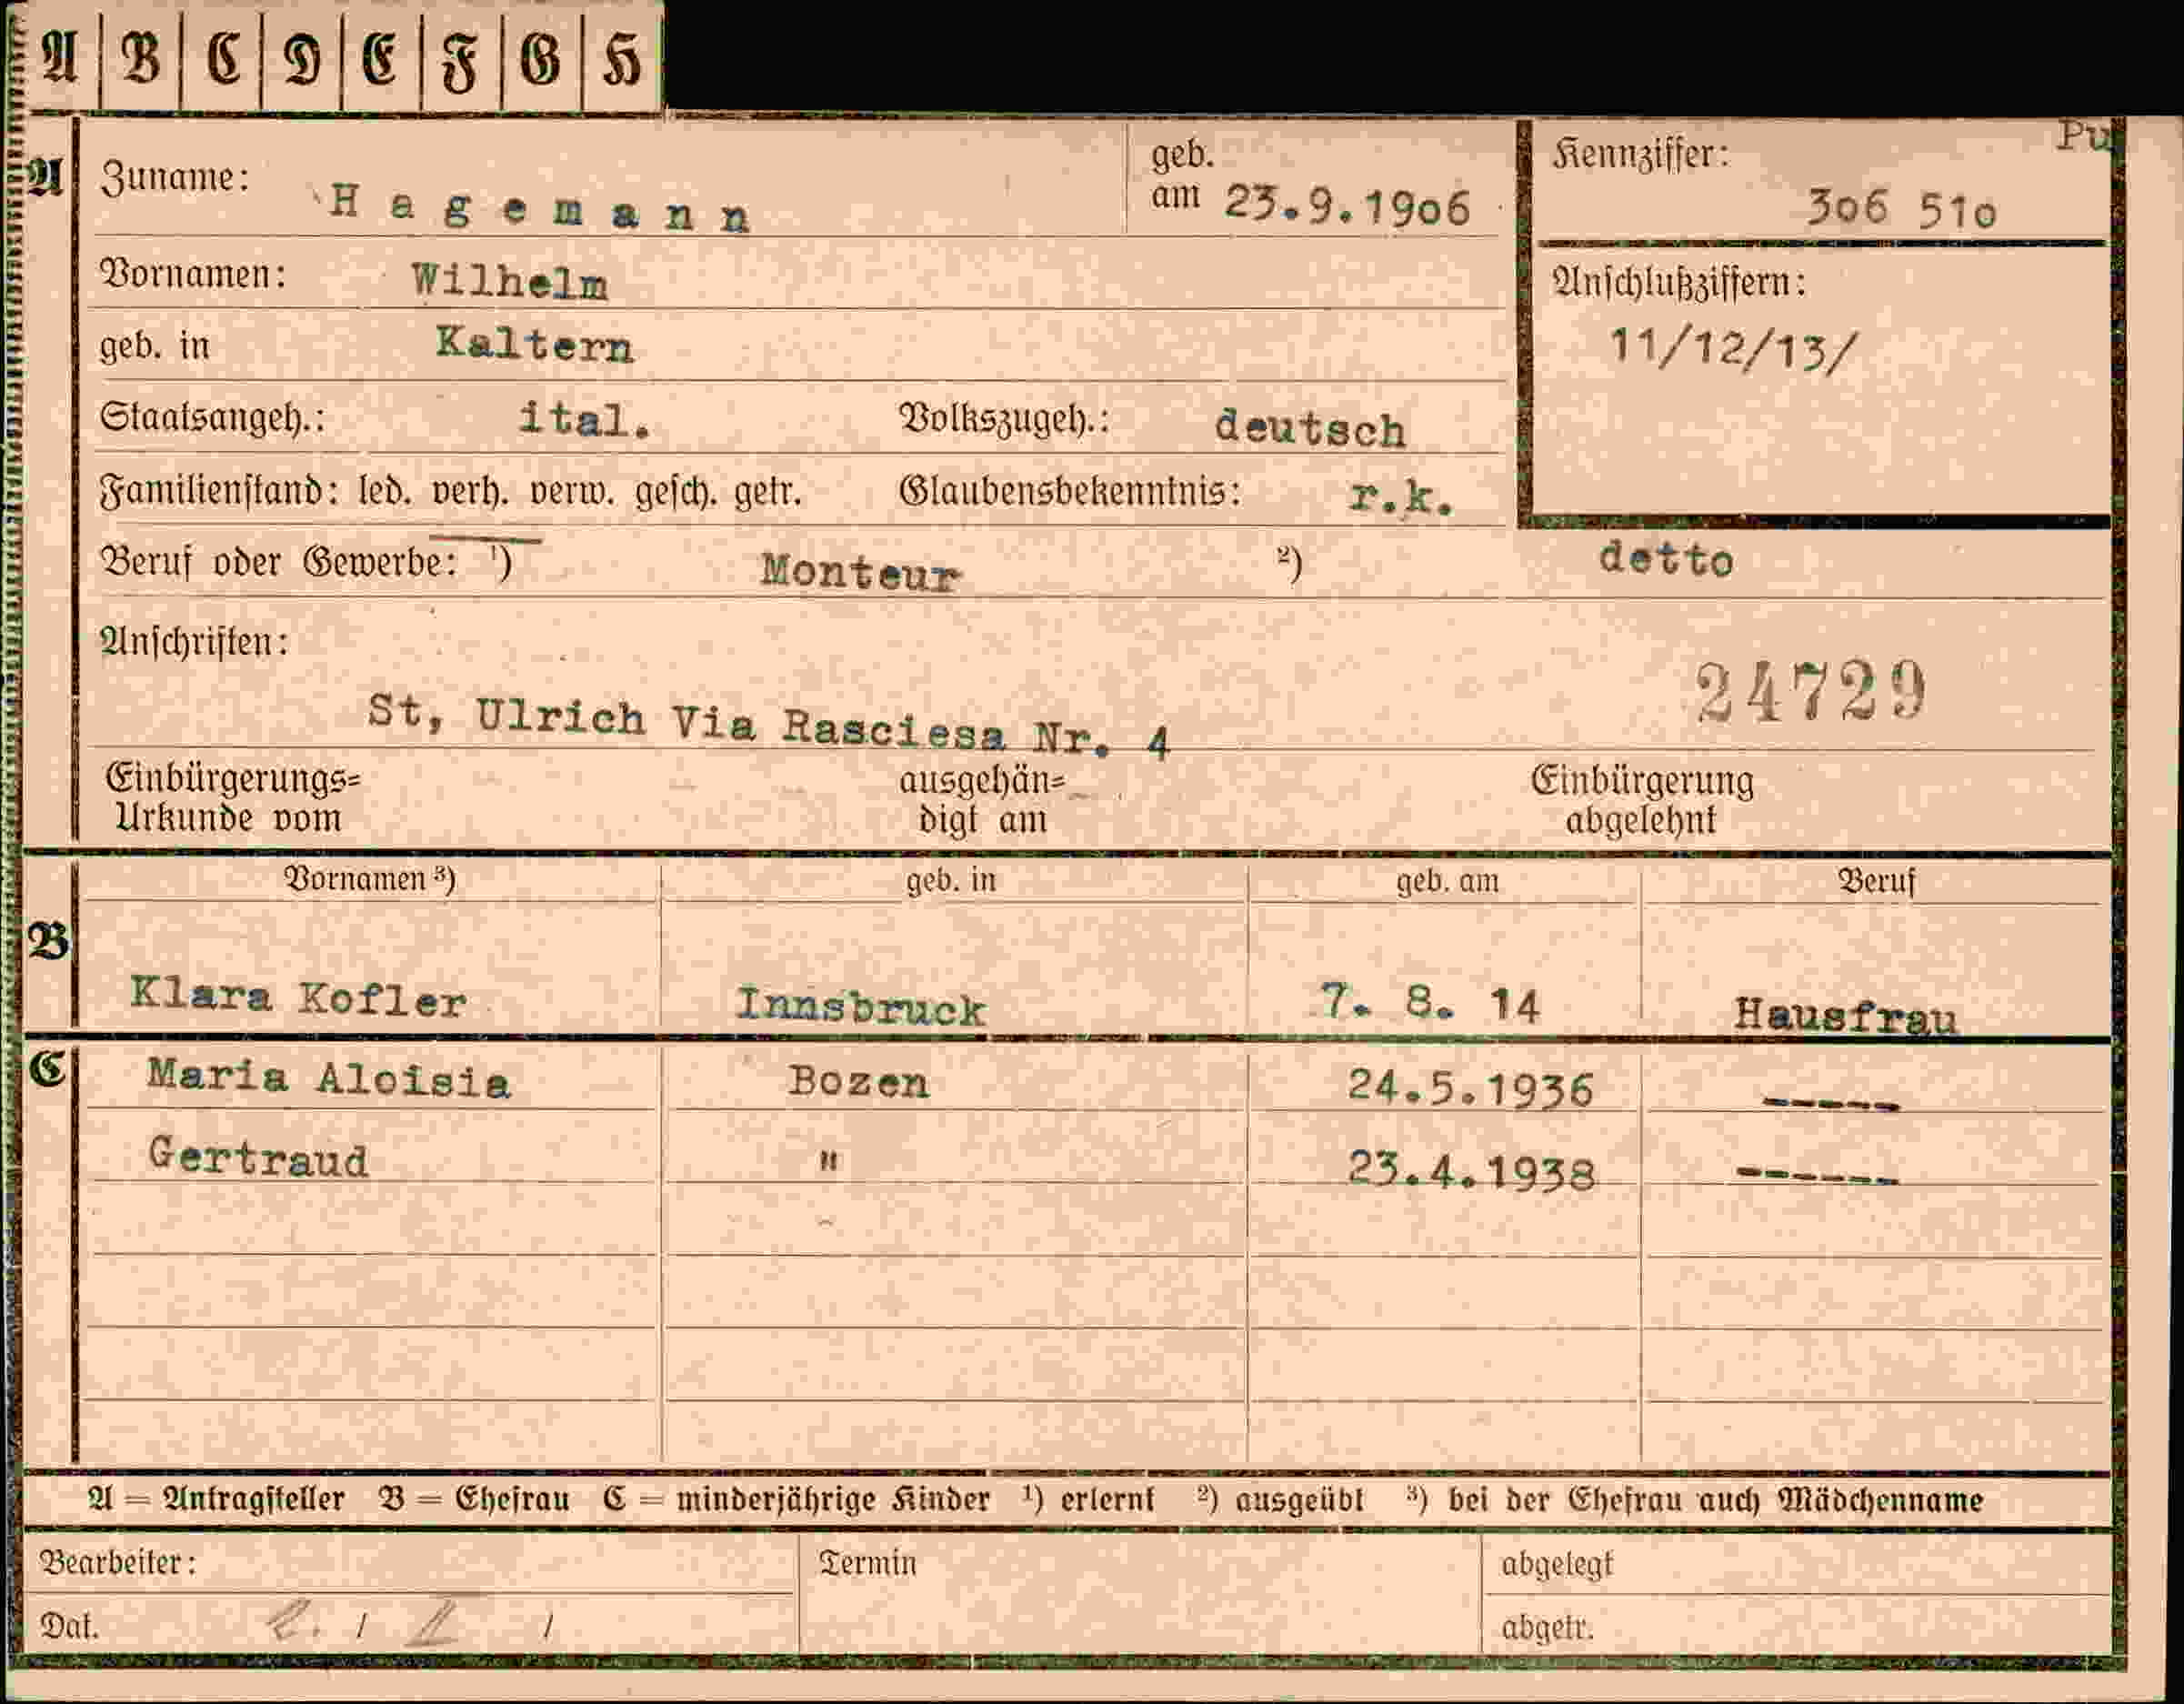 A B C D E F G H
Pu
A Zuname: Hagemann geb. am 23.9.1906 Kennziffer: 306 510
Vornamen: Wilhelm Anschlußziffern:
geb. in Kaltern 11/12/13/
Staatsangeh.: ital. Volkszugeh.: deutsch
Familienstand: led. verh. verw. gesch. getr. Glaubensbekenntnis: r.k.
Beruf oder Gewerbe: ¹) Monteur ²) detto
Anschriften:
24729
St, Ulrich Via Rasciesa Nr. 4
Einbürgerungs= ausgehän= Einbürgerung
Urkunde vom digt am abgelehnt
Vornamen ³) geb. in geb. am Beruf
B
Klara Kofler Innsbruck 7. 8. 14 Hausfrau
C Maria Aloisia Bozen 24.5.1936 -----
Gertraud " 23.4.1938 ------
A = Antragsteller B = Ehefrau C = minderjährige Kinder ¹) erlernt ²) ausgeübt ³) bei der Ehefrau auch Mädchenname
Bearbeiter: Termin abgelegt
Dat. / / abgetr.